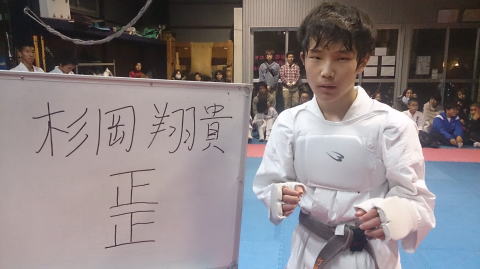 杉岡翔貴
正
正